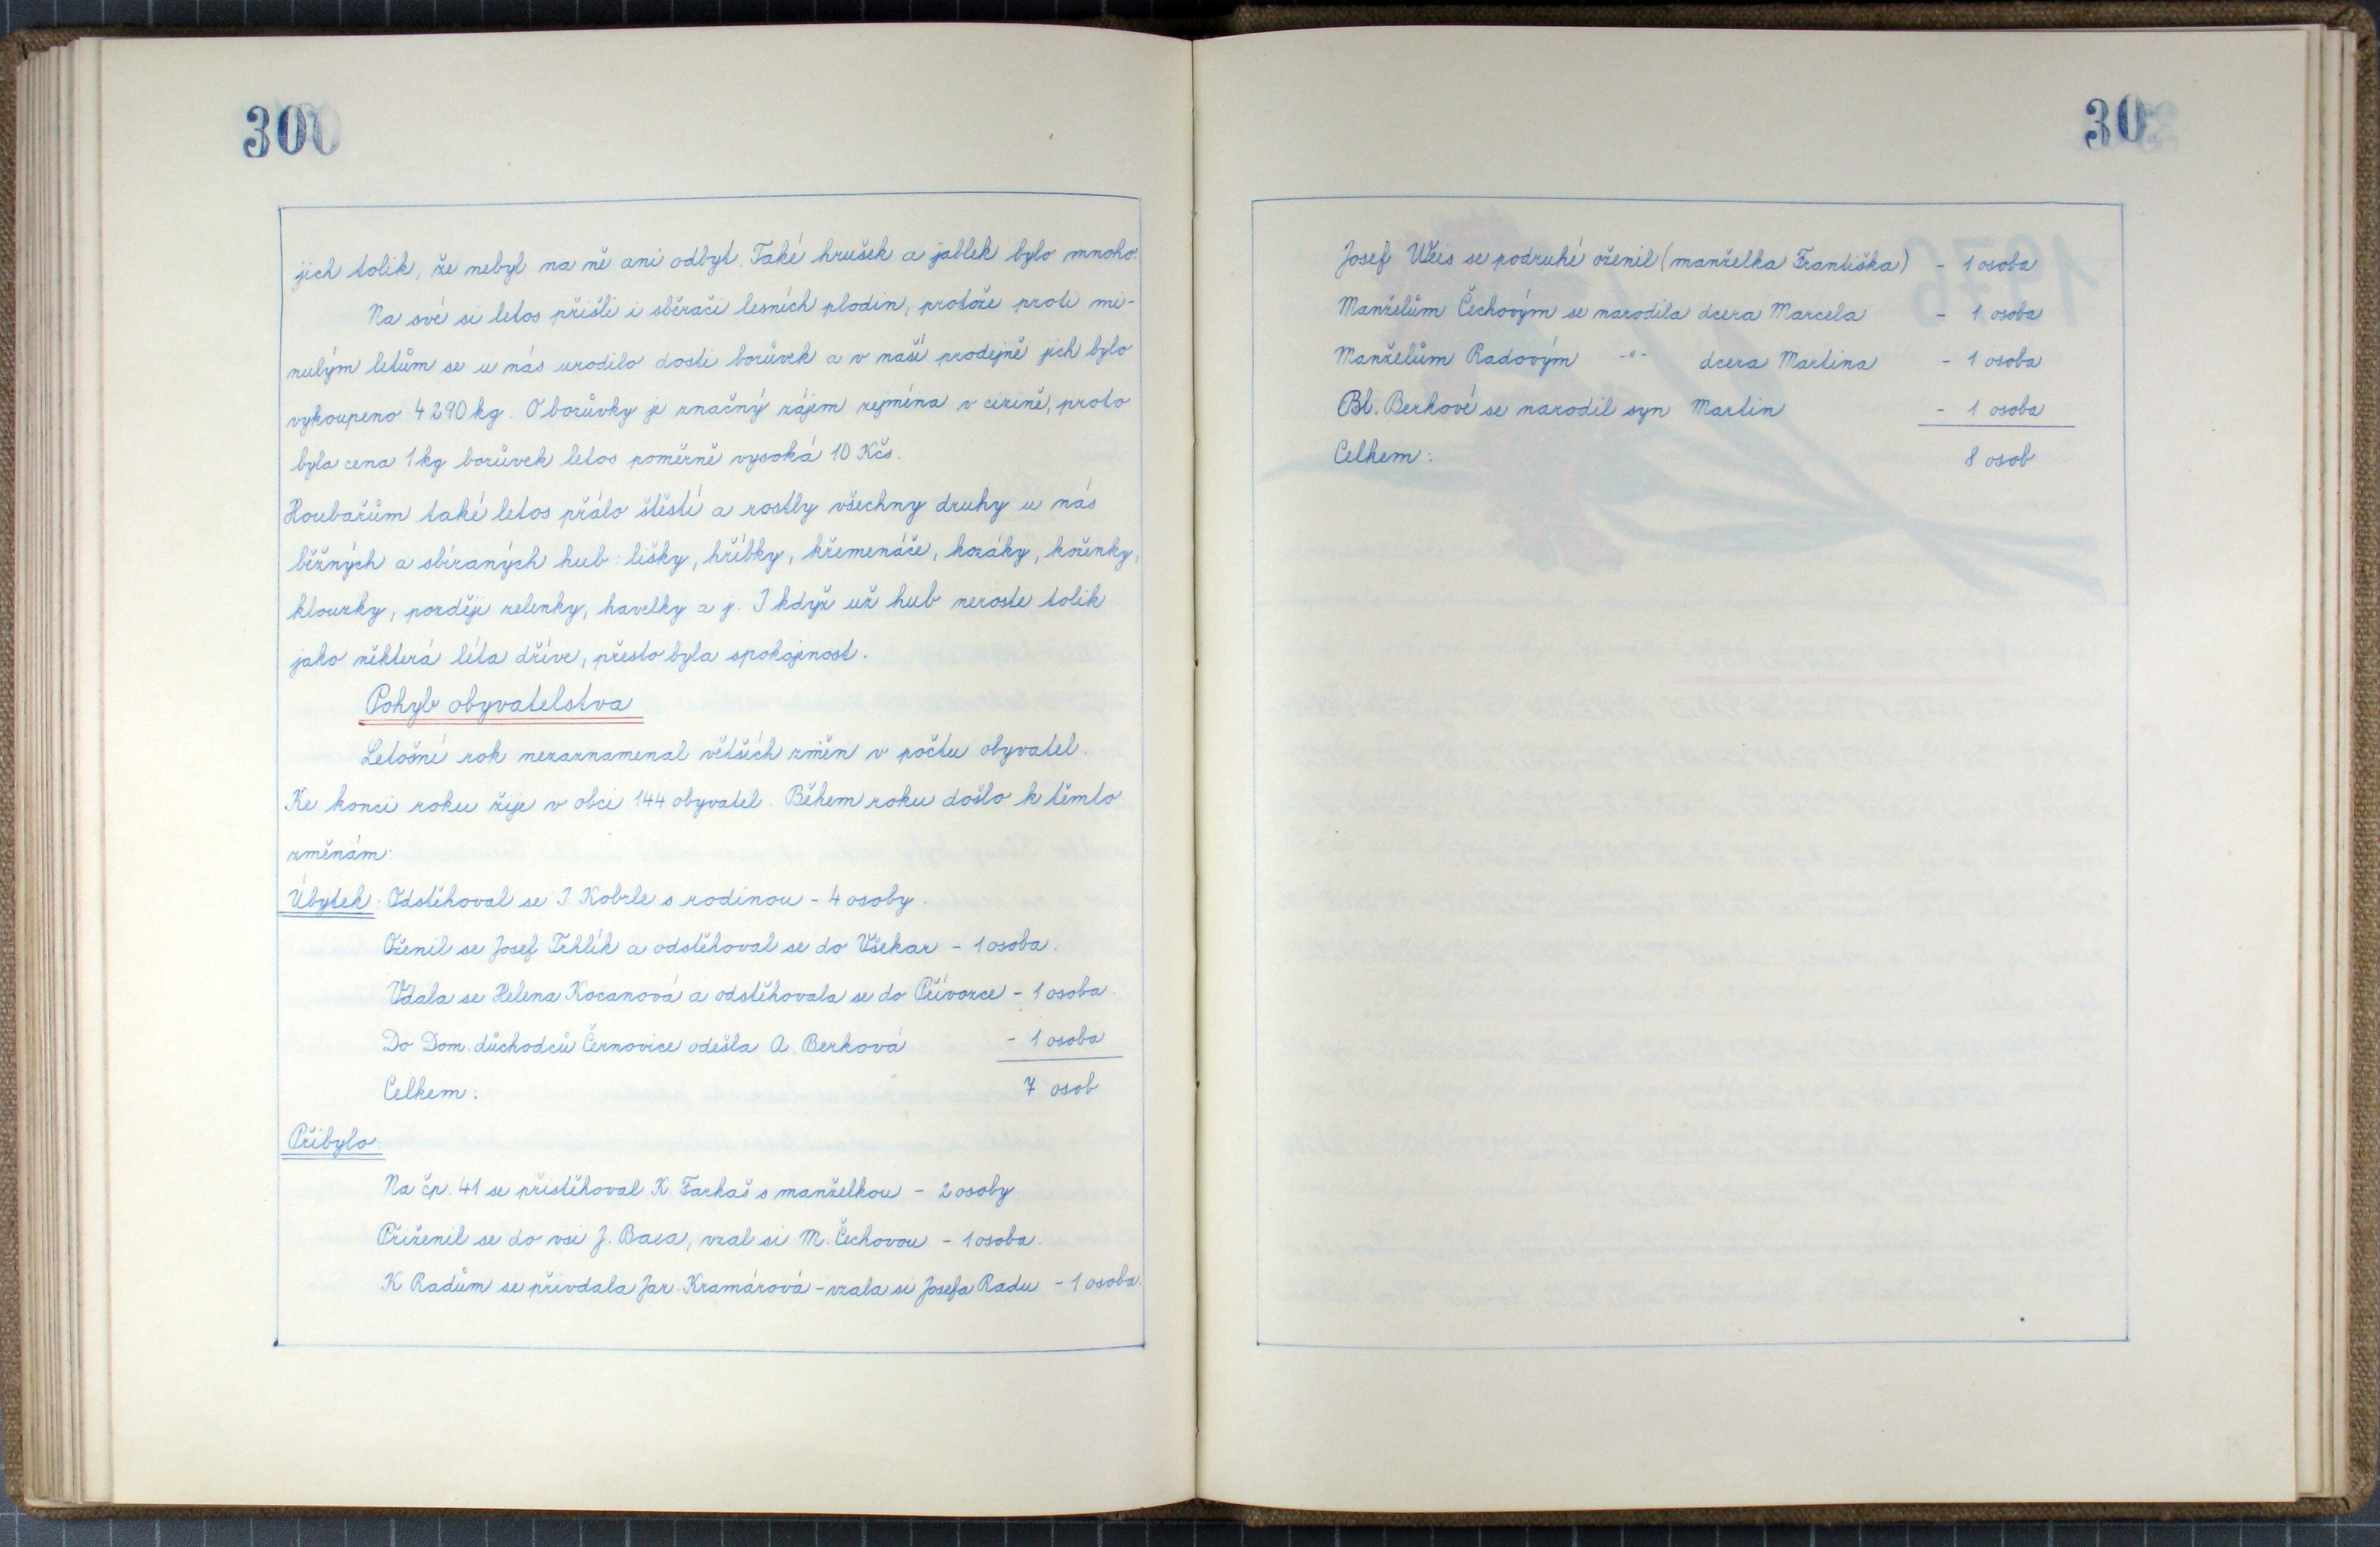 300
jich tolik, že nebyl na ně ani odbyt. Také hrušek a jablek bylo mnoho.
Na své si letos přišli i sběrači lesních plodin, protože proti mi-
nulým letům se u nás urodilo dosti borůvek a v naší prodejně jich bylo
vykoupeno 4 290 kg. O borůvky je značný zájem zejména v cizině, proto
byla cena 1 kg borůvek letos poměrně vysoká 10 Kčs.
Houbařům také letos přálo štěstí a rostly všechny druhy u nás
běžných a sbíraných hub: lišky, hříbky, křemenáče, kozáky, koženky,
klouzky, později zelenky, havelky a j. I když už hub neroste tolik
jako některá léta dříve, přesto byla spokojenost.
Pohyb obyvatelstva
Letošní rok nezaznamenal větších změn v počtu obyvatel.
Ke konci roku žije v obci 144 obyvatel. Během roku došlo k těmto
změnám:
Úbytek: Odstěhoval se J. Kobrle s rodinou - 4 osoby.
Oženil se Josef Trhlík a odstěhoval se do Všekar - 1 osoba.
Vdala se Helena Kocanová a odstěhovala se do Přívozce - 1 osoba.
Do Dom. důchodců Černovice odešla A. Berková - 1 osoba
Celkem: 7 osob
Přibylo:
Na čp. 41 se přistěhoval K. Farkaš s manželkou - 2 osoby
Přiženil se do vsi J. Baca, vzal si M. Čechovou - 1 osoba.
K Radům se přivdala Jar. Kramárová - vzala si Josefa Radu - 1 osoba.
30
Josef Weis se podruhé oženil (manželka Františka) - 1 osoba
Manželům Čechovým se narodila dcera Marcela - 1 osoba
Manželům Radovým -"- dcera Martina - 1 osoba
Bl. Berkové se narodil syn Martin - 1 osoba
Celkem: 8 osob